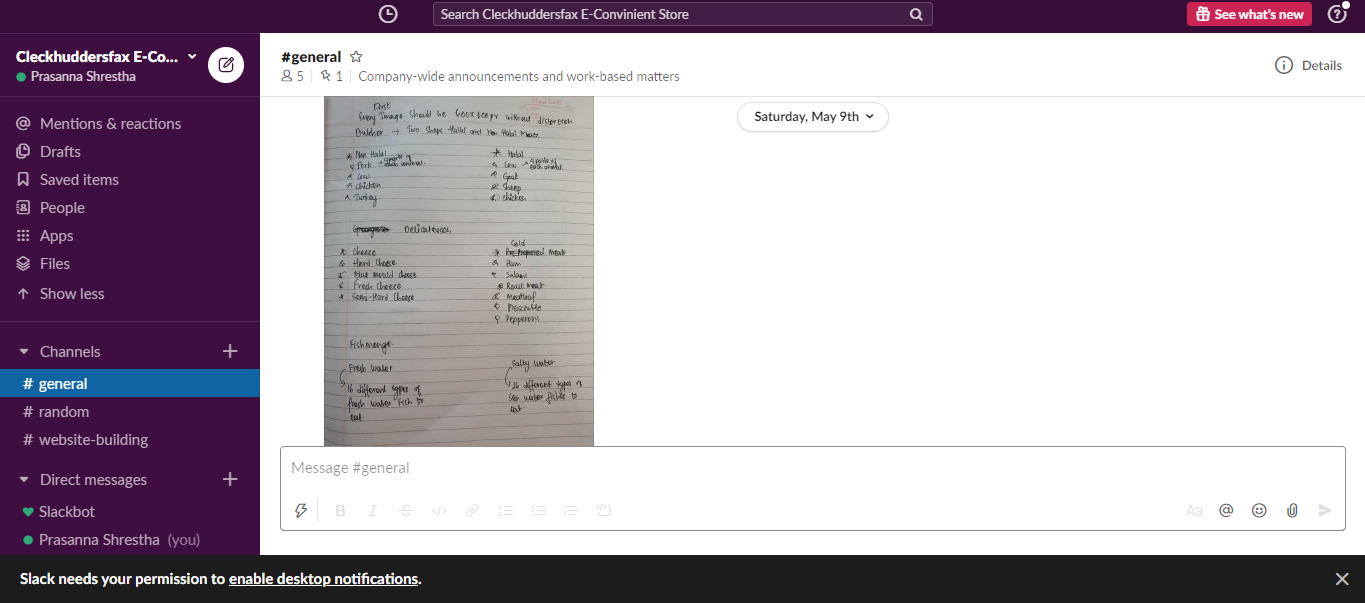 Search Cleckhuddersfax E-Convinient Store
See what's new
Cleckhuddersfax E-Co...
Prasanna Shrestha
Mentions & reactions
Drafts
Saved items
People
Apps
Files
Show less
Channels
# general
# random
# website-building
Direct messages
Slackbot
Prasanna Shrestha (you)
#general
5 | 1 | Company-wide announcements and work-based matters
Details
Saturday, May 9th
First
Every Image should be 600x600px without distortion
Butcher → Two Shops Halal and Non Halal Meat.
Non Halal
Pork → 4 parts of each animal.
Cow
chicken
Turkey
Halal
Cow → 4 parts of each animal.
Goat
Sheep
chicken
Delicatessen
Cheese
Hard Cheese
Blue mould cheese
Fresh cheese
Semi-Hard Cheese
Cold
meat
Ham
Salami
Roast meat
Meatloaf
Prosciutto
Pepperoni
Fishmonger
Fresh water
16 different types of
fresh water fish to
eat
Salty water
16 different types of
sea water fishes to
eat
Message #general
Aa
Slack needs your permission to enable desktop notifications.